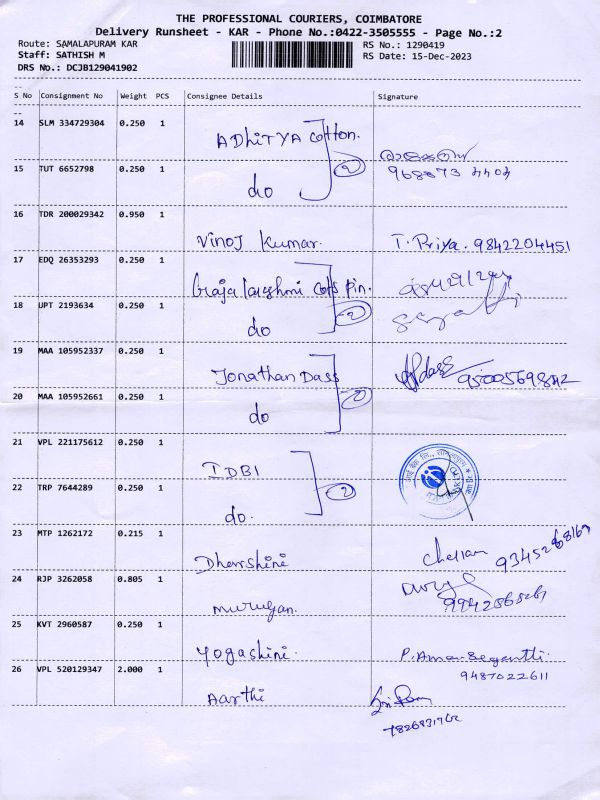 THE PROFESSIONAL COURIERS, COIMBATORE
Delivery Runsheet - KAR - Phone No.:0422-3505555 - Page No.:2
Route: SAMALAPURAM KAR RS No.: 1290419
Staff: SATHISH M RS Date: 15-Dec-2023
DRS No.: DCJB129041902
S No Consignment No Weight PCS Consignee Details Signature
14 SLM 334729304 0.250 1 ADhiTYA Cotton.
15 TUT 6652798 0.250 1 do 2
16 TDR 200029342 0.950 1 Vinoj Kumar. T. Priya. 9842204451
17 EDQ 26353293 0.250 1
18 UPT 2193634 0.250 1 do 2
19 MAA 105952337 0.250 1 Jonathan Dass
20 MAA 105952661 0.250 1 do 2
21 VPL 221175612 0.250 1 IDBI
22 TRP 7644289 0.250 1 do. 2
23 MTP 1262172 0.215 1 Dharshini
24 RJP 3262058 0.805 1 Murugan.
25 KVT 2960587 0.250 1 Yogashini. 9487022611
26 VPL 520129347 2.000 1 Aarthi